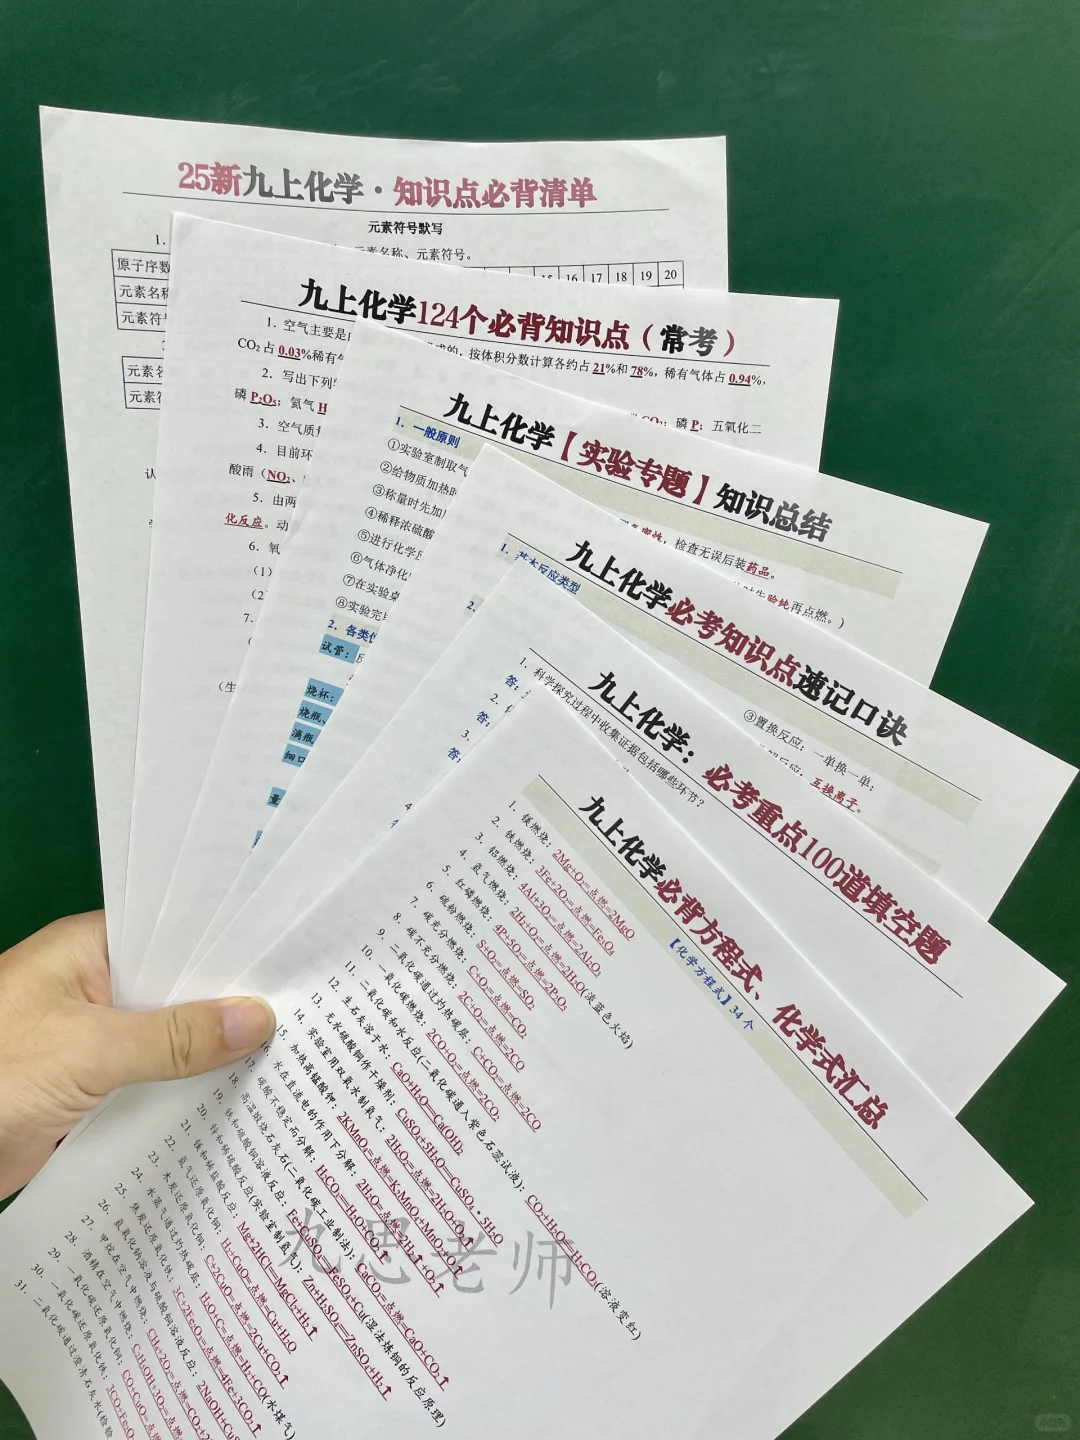 25新九上化学·知识点必背清单
元素符号默写
1.
元素名称、元素符号。
原子序数 15 16 17 18 19 20
元素名称
元素符号
元素名
元素符
九上化学124个必背知识点（常考）
1. 空气主要是由 成的，按体积分数计算各约占21%和78%，稀有气体占0.94%，
CO₂占0.03%稀有气
2. 写出下列
磷P₂O₅；氦气H 磷P；五氧化二
3. 空气质
4. 目前环
酸雨（NO₂、
5. 由两
化反应。动
6. 氧
（1）
（2
7.
（生
九上化学【实验专题】知识总结
1. 一般原则
①实验室制取气 密性；检查无误后装药品。
②给物质加热时 验纯再点燃。）
③称量时先加
④稀释浓硫酸
⑤进行化学反
⑥气体净化
⑦在实验桌
⑧实验完毕
2. 各类仪
试管：反
烧杯：
烧瓶、
滴瓶
细口
量
九上化学必考知识点速记口诀
1. 基本反应类型
③置换反应：一单换一单；
互换离子。
2.
九上化学：必考重点100道填空题
1. 科学探究过程中收集证据包括哪些环节？
答：
2.
答：
3.
答：
4.
九上化学必背方程式、化学式汇总
【化学方程式】34个
1. 镁燃烧：2Mg+O₂=点燃=2MgO
2. 铁燃烧：3Fe+2O₂=点燃=Fe₃O₄
3. 铝燃烧：4Al+3O₂=点燃=2Al₂O₃
4. 氢气燃烧：2H₂+O₂=点燃=2H₂O(淡蓝色火焰)
5. 红磷燃烧：4P+5O₂=点燃=2P₂O₅
6. 硫粉燃烧：S+O₂=点燃=SO₂
7. 碳充分燃烧：C+O₂=点燃=CO₂
8. 碳不充分燃烧：2C+O₂=点燃=2CO
9. 二氧化碳通过灼热碳层：C+CO₂=点燃=2CO
10. 一氧化碳燃烧：2CO+O₂=点燃=2CO₂
11. 二氧化碳和水反应(二氧化碳通入紫色石蕊试液)：CO₂+H₂O═H₂CO₃(溶液变红)
12. 生石灰溶于水：CaO+H₂O═Ca(OH)₂
13. 无水硫酸铜作干燥剂：CuSO₄+5H₂O═CuSO₄·5H₂O
14. 实验室用双氧水制氧气：2H₂O₂=点燃=2H₂O+O₂↑
15. 加热高锰酸钾：2KMnO₄=点燃=K₂MnO₄+MnO₂+O₂↑
16. 水在直流电的作用下分解：2H₂O=点燃=2H₂↑+O₂↑
17. 碳酸不稳定而分解：H₂CO₃═H₂O+CO₂↑
18. 高温煅烧石灰石(二氧化碳工业制法)：CaCO₃=点燃=CaO+CO₂↑
19. 铁和硫酸铜溶液反应：Fe+CuSO₄═FeSO₄+Cu(湿法炼铜的反应原理)
20. 锌和稀硫酸反应(实验室制氢气)：Zn+H₂SO₄═ZnSO₄+H₂↑
21. 镁和稀盐酸反应：Mg+2HCl═MgCl₂+H₂↑
22. 氢气还原氧化铜：H₂+CuO=点燃=Cu+H₂O
23. 木炭还原氧化铜：C+2CuO=点燃=2Cu+CO₂↑
24. 水蒸气通过灼热碳层：H₂O+C=点燃=H₂+CO(水煤气)
25. 焦炭还原氧化铁：3C+2Fe₂O₃=点燃=4Fe+3CO₂↑
26. 氢氧化钠溶液与硫酸铜溶液反应：2NaOH+CuS
27. 甲烷在空气中燃烧：CH₄+2O₂=点燃=CO₂+2
28. 酒精在空气中燃烧：C₂H₅OH+3O₂=点燃=
29. 一氧化碳还原氧化铜：CO+CuO=点燃=
30. 一氧化碳还原氧化铁：3CO+Fe₂O
31. 二氧化碳通过澄清石灰水(检验
九思老师
小红书